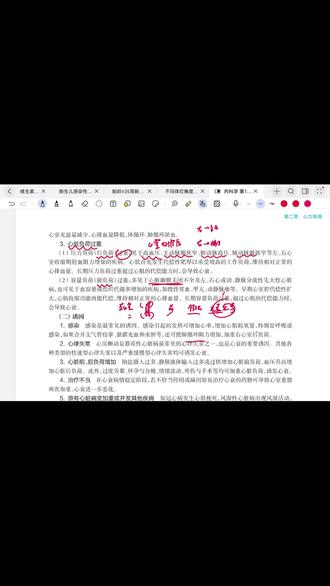 维生素... × 新生儿感染性... × 胎龄≥35周新... × 不同体位角度... × 内科学 第1... ×
第二章 心力衰竭
心室充盈量减少,心排血量降低,体循环、肺循环淤血。
3. 心脏负荷过重
(1)压力负荷(后负荷)过重:见于高血压、主动脉瓣狭窄、肺动脉高压、肺动脉瓣狭窄等左、右心
室收缩期射血阻力增加的疾病。心脏首先发生代偿性肥厚以承受增高的工作负荷,维持相对正常的
心排量。长期压力负荷过重超过心肌的代偿能力时,会导致心衰。
(2)容量负荷(前负荷)过重:多见于心脏瓣膜关闭不全及左、右心或动、静脉分流性先天性心脏
大,心肌收缩功能尚能代偿,维持相对正常的心排血量。长期容量负荷过重,超过心肌的代偿能力时,
会导致心衰。
(二)诱因
1. 感染 感染是最常见的诱因。感染引起的发热可增加心率,增加心肌耗氧量,特别是呼吸道
感染,如果合并支气管痉挛、黏膜充血和水肿等,还可使肺循环阻力增加,加重右心室后负荷。
2. 心律失常 心房颤动是器质性心脏病最常见的心律失常之一,也是心衰的重要诱因。其他
各种类型的快速型心律失常以及严重缓慢型心律失常均可诱发心衰。
3. 心脏前、后负荷增加 钠盐摄入过多、静脉液体输入过多或过快增加心脏前负荷,血压升高增
加心脏后负荷。此外,过度劳累、怀孕与分娩、情绪激动、外伤与手术等均可加重心脏负荷,诱发心衰。
4. 治疗不当 在心衰病情稳定阶段,若不恰当停用或减用原有治疗心衰的药物可导致心室重塑
再次加重、心衰进一步恶化。
5. 原有心脏病变加重或并发其他疾病 如冠心病发生心肌梗死,风湿性心脏病出现风湿活动,